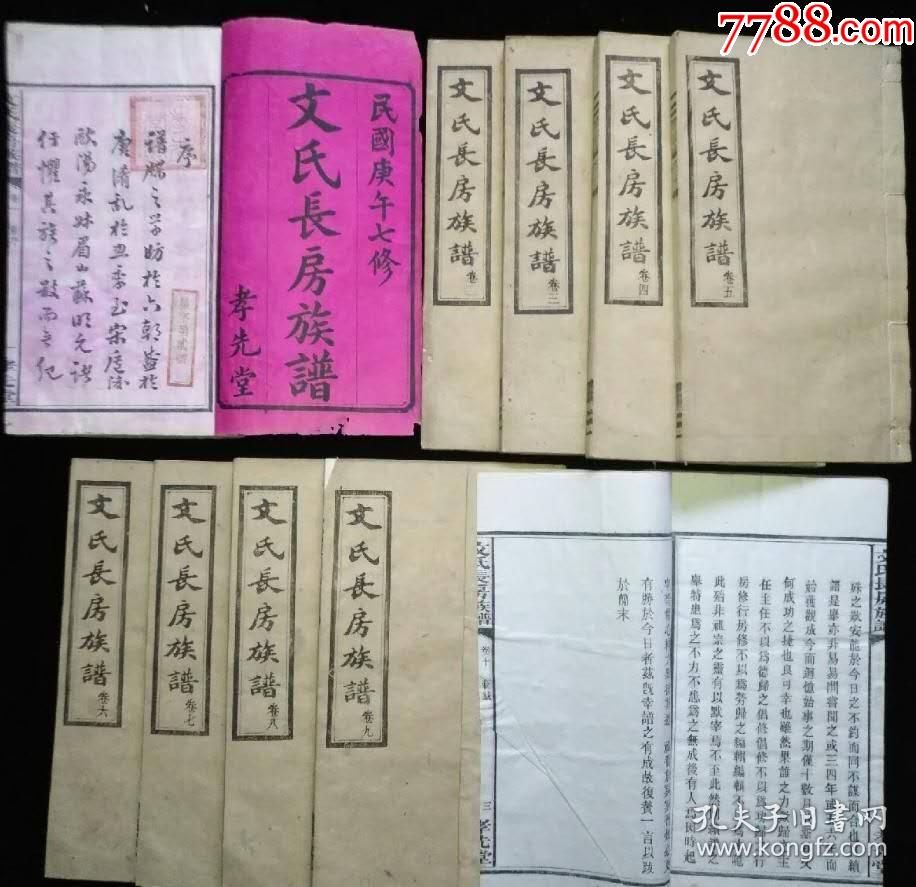 7788.com
民國庚午七修
文氏長房族譜
孝先堂
序
譜牒之學昉於六朝盛於
唐淆乱於五季至宋廬陵
歐陽永叔眉山蘇明允諸
任懼其族之散而
文氏長房族譜 卷
文氏長房族譜 卷三
文氏長房族譜 卷四
文氏長房族譜 卷五
文氏長房族譜 卷六
文氏長房族譜 卷七
文氏長房族譜 卷八
文氏長房族譜 卷九
文氏長房族譜
殊之歎安能於今日之不約而同不謀而合也
譜是舉亦非易易間嘗聞之或三四年或五六
始獲觀成今而迴憶始事之期僅十數月
何成功之捷也良可幸也雖然果誰之力歟歸
任主任不以為德歸之倡修倡修不以為
房修行房修不以為勞歸之編輯編輯不
此殆非祖宗之靈有以默宰焉不至此然
舉特患為之不力不患為之無成後有人
有勝於今日者茲既幸譜之有成故復贅一言以跋
於簡末
文氏長房族譜
卷十
三
孝先堂
孔夫子旧书网